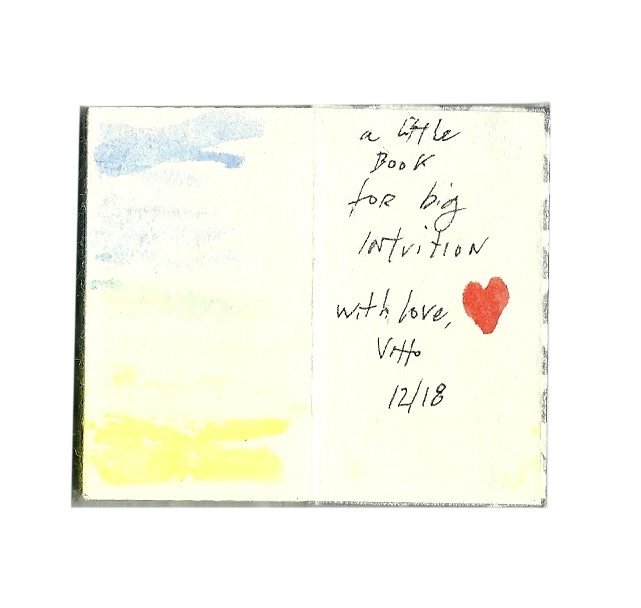 a little
Book
for big
Intuition
with love,
Vitto
12/18